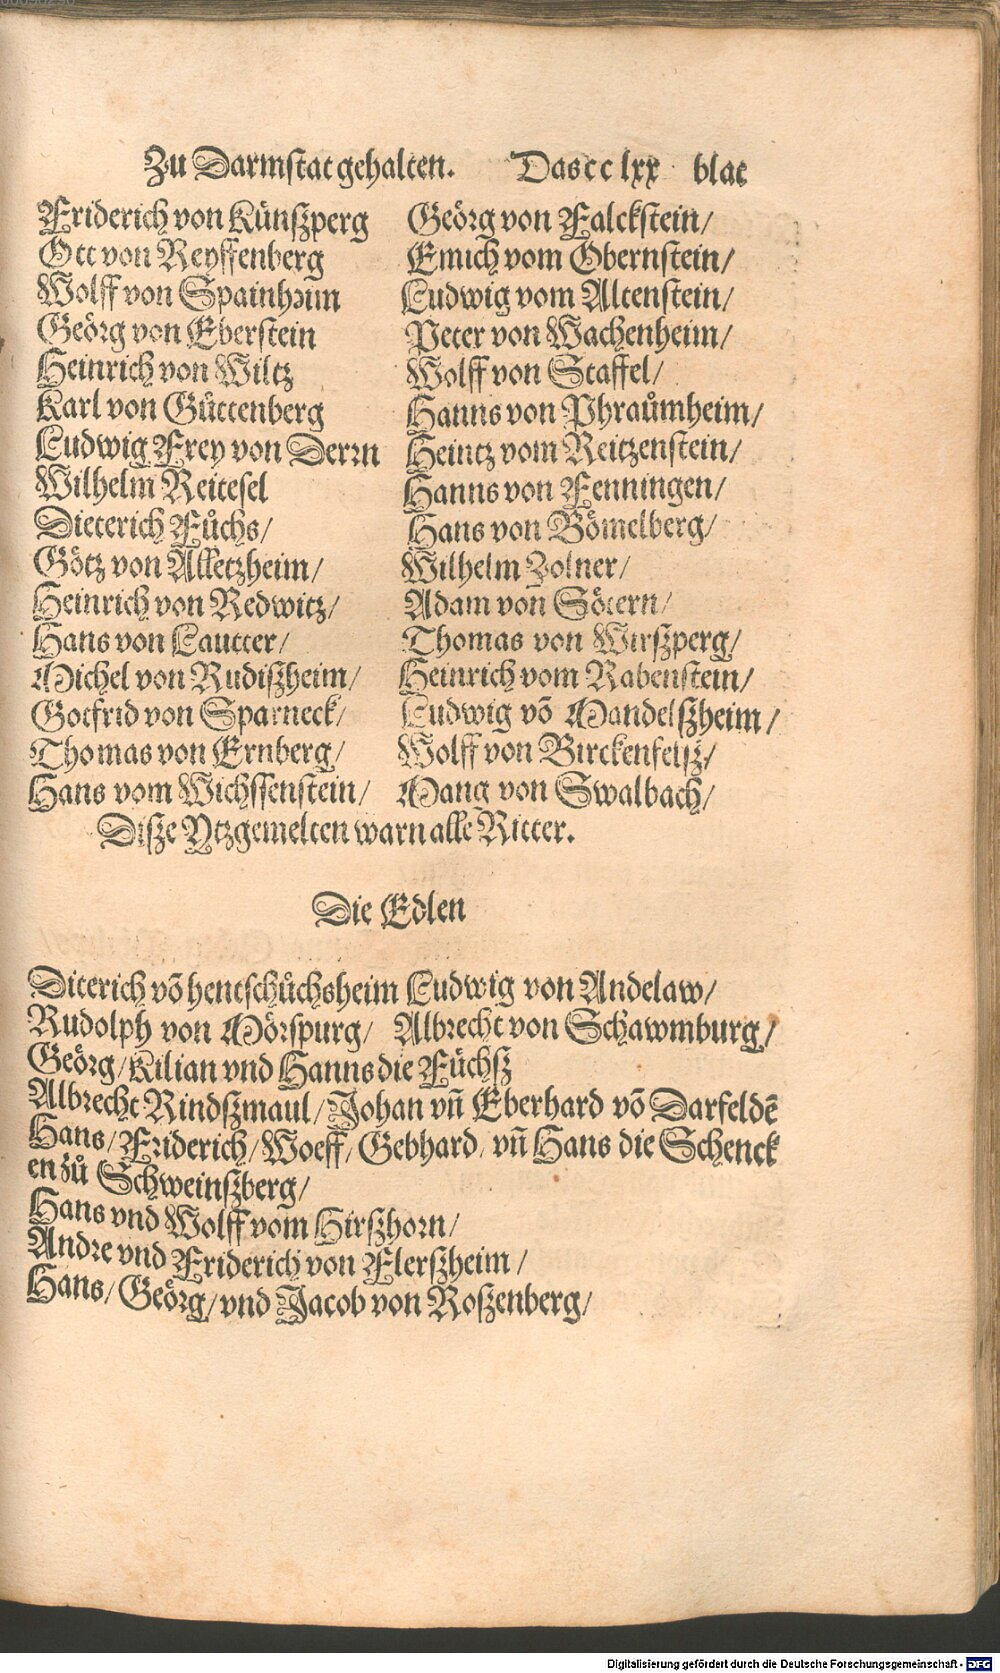 Zu Darmstat gehalten. Das cc lxx blat
Friderich von Künßperg
Ott von Reyffenberg
Wolff von Spainhrun
Geörg von Eberstein
Heinrich von Wiltz
Karl von Güttenberg
Ludwig Frey von Derrn
Wilhelm Reitesel
Dieterich Fůchs/
Götz von Alletzheim/
Heinrich von Redwitz/
Hans von Lautter/
Michel von Rudißheim/
Gotfrid von Sparneck/
Thomas von Ernberg/
Hans vom Wichssenstein/
Geörg von Falckstein/
Emich vom Obernstein/
Ludwig vom Altenstein/
Peter von Wachenheim/
Wolff von Staffel/
Hanns von Phraůmheim/
Heintz vom Reitzenstein/
Hanns von Fenningen/
Hans von Bömelberg/
Wilhelm Zolner/
Adam von Sötern/
Thomas von Wirßperg/
Heinrich vom Rabenstein/
Ludwig võ Mandelßheim/
Wolff von Birckenfelß/
Mang von Swalbach/
Diße Ytzgemelten warn alle Ritter.
Die Edlen
Diterich võ hentschůchsheim Ludwig von Andelaw/
Rudolph von Mörspurg/ Albrecht von Schawmburg/
Geörg/ Kilian vnd Hanns die Füchß
Albrecht Rindßmaul/ Johan vñ Eberhard võ Darfeldẽ
Hans/ Friderich/ Woeff/ Gebhard/ vñ Hans die Schenck
en zů Schweinßberg/
Hans vnd Wolff vom Hirßhorn/
Andre vnd Friderich von Flerßheim/
Hans/ Geörg/ vnd Jacob von Roßenberg/
Digitalisierung gefördert durch die Deutsche Forschungsgemeinschaft - DFG